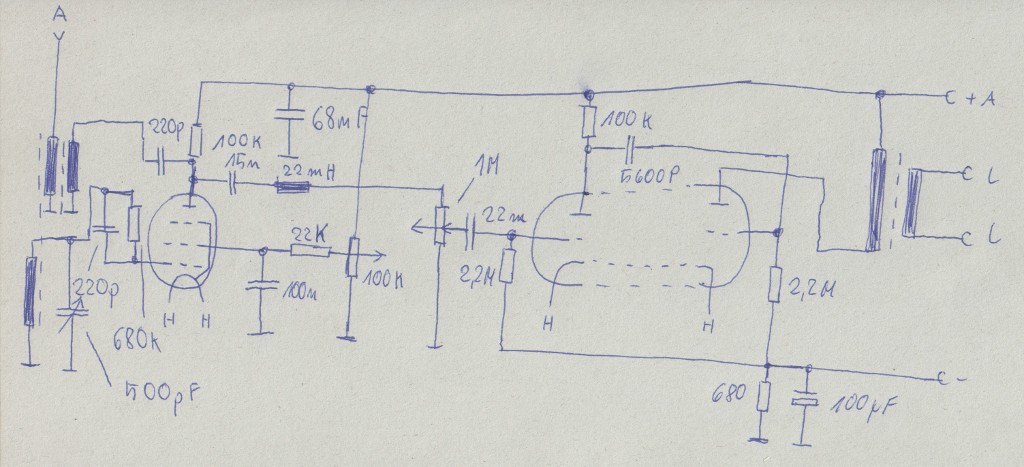 A
220p
100K
68mF
15n
22mH
1M
22n
100K
5600P
C + A
C L
C L
22K
100K
100n
2,2M
2,2M
220p
680K
500pF
H H
H
H
680
100µF
C -